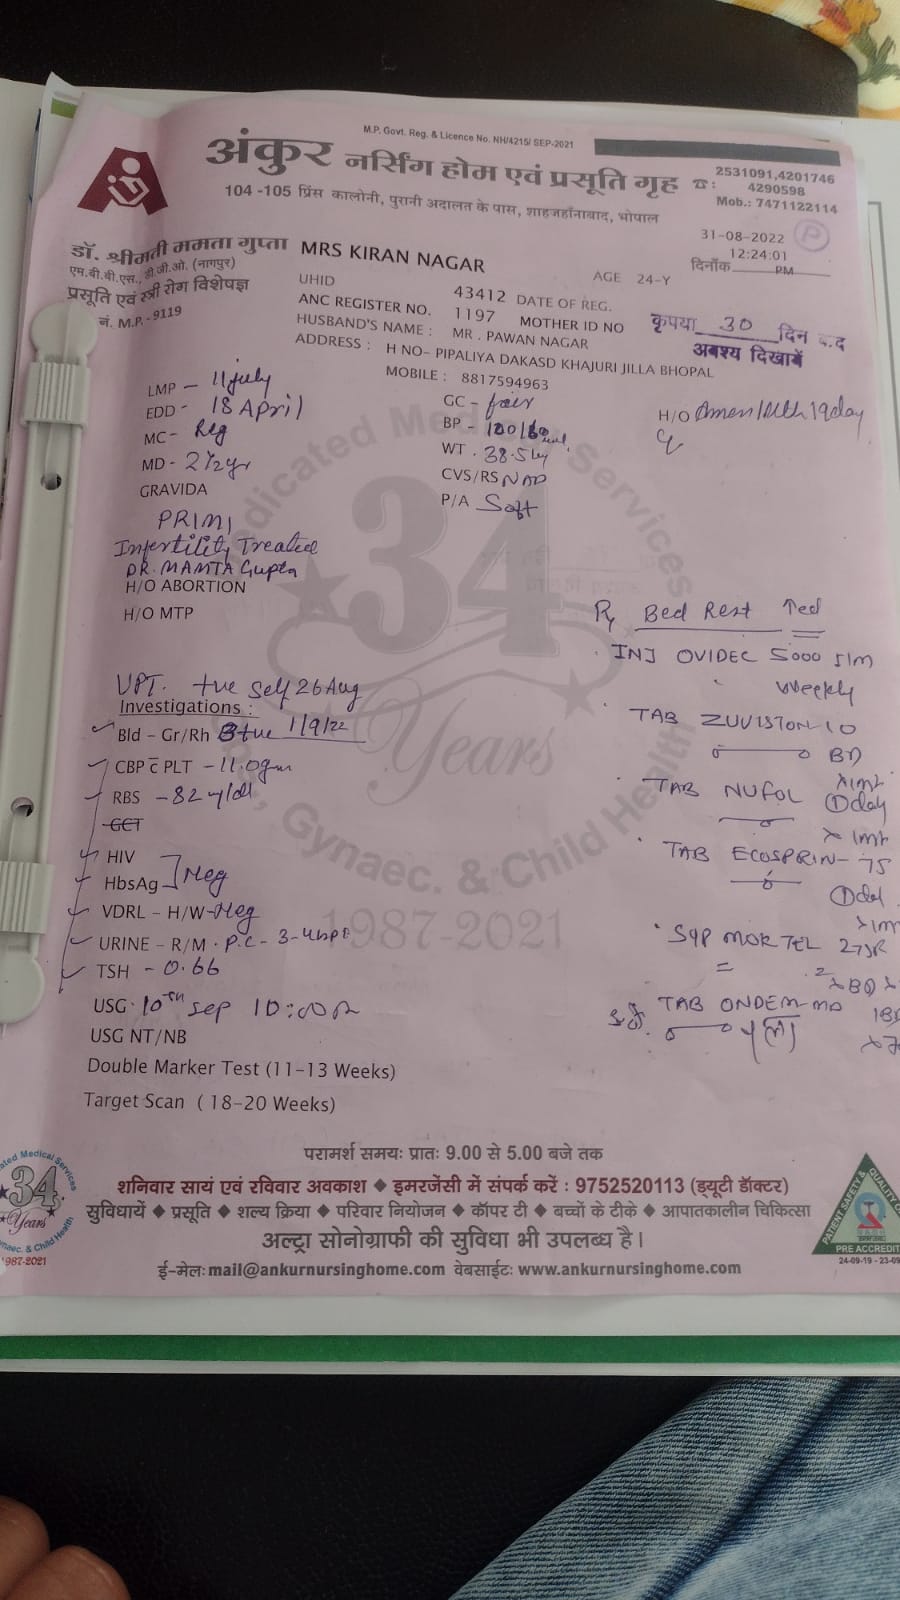 M.P. Govt. Reg. & Licence No. NH/4215/ SEP-2021
अंकुर नर्सिंग होम एवं प्रसूति गृह
2531091,4201746
4290598
Mob.: 7471122114
104 -105 प्रिंस कालोनी, पुरानी अदालत के पास, शाहजहाँनाबाद, भोपाल
डॉ. श्रीमती ममता गुप्ता
एम.बी.बी.एस., डी.जी.ओ. (नागपुर)
प्रसूति एवं स्त्री रोग विशेषज्ञ
नं. M.P. - 9119
31-08-2022 P
12:24:01
दिनाँक PM
MRS KIRAN NAGAR
AGE 24-Y
UHID 43412 DATE OF REG.
ANC REGISTER NO. 1197 MOTHER ID NO
HUSBAND'S NAME : MR . PAWAN NAGAR
ADDRESS : H NO- PIPALIYA DAKASD KHAJURI JILLA BHOPAL
MOBILE : 8817594963
कृपया 30 दिन
अवश्य दिखायें
LMP - 11 July
EDD - 18 April
MC- Reg
MD - 2 1/2 yr
GRAVIDA
PRIMI
Infertility Treated
DR. MAMTA Gupta
H/O ABORTION
H/O MTP
GC - fair
BP - 100/60
WT . 38.5 kg
CVS/RS NAD
P/A Soft
H/O Amen 19day
UPT. +ve self 26 Aug
Investigations :
Bld - Gr/Rh B+ve 1/9/22
CBP c̄ PLT - 11.0gm
RBS - 82
GCT
HIV
HbsAg Neg
VDRL - H/W- Neg
URINE - R/M . P.C - 3-4
TSH - 0.66
USG . 10TH Sep 10:00
USG NT/NB
Double Marker Test (11-13 Weeks)
Target Scan ( 18-20 Weeks)
Rx Bed Rest
INJ OVIDEC 5000 I/M
weekly
TAB ZUVISTON-10
BD
TAB NUFOL 1 day
TAB ECOSPRIN-75
SYP 2TSP
TAB ONDEM-MD
34
Years
Dedicated Medical Services
Obs., Gynaec. & Child Health
1987-2021
परामर्श समयः प्रातः 9.00 से 5.00 बजे तक
शनिवार सायं एवं रविवार अवकाश ◆ इमरजेंसी में संपर्क करें : 9752520113 (ड्यूटी डॉक्टर)
सुविधायें ◆ प्रसूति ◆ शल्य क्रिया ◆ परिवार नियोजन ◆ कॉपर टी ◆ बच्चों के टीके ◆ आपातकालीन चिकित्सा
अल्ट्रा सोनोग्राफी की सुविधा भी उपलब्ध है।
ई-मेलः mail@ankurnursinghome.com वेबसाईटः www.ankurnursinghome.com
34
Years
1987-2021
PATIENT SAFETY &
PRE ACCREDIT
24-09-19 - 23-09